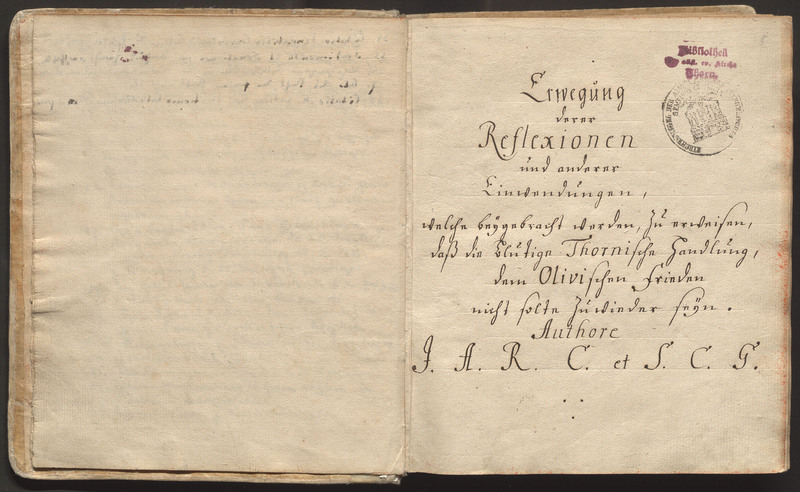 Bibliothek
ev. Kirche
Thorn
Erwegung
derer
Reflexionen
und anderer
Einwendungen,
welche beygebracht werden, zu erweisen,
daß die blutige Thornische Handlung,
dem Olivischen Frieden
nicht solte zuwieder seÿn.
Authore
J. A. R. C. et S. C. G.